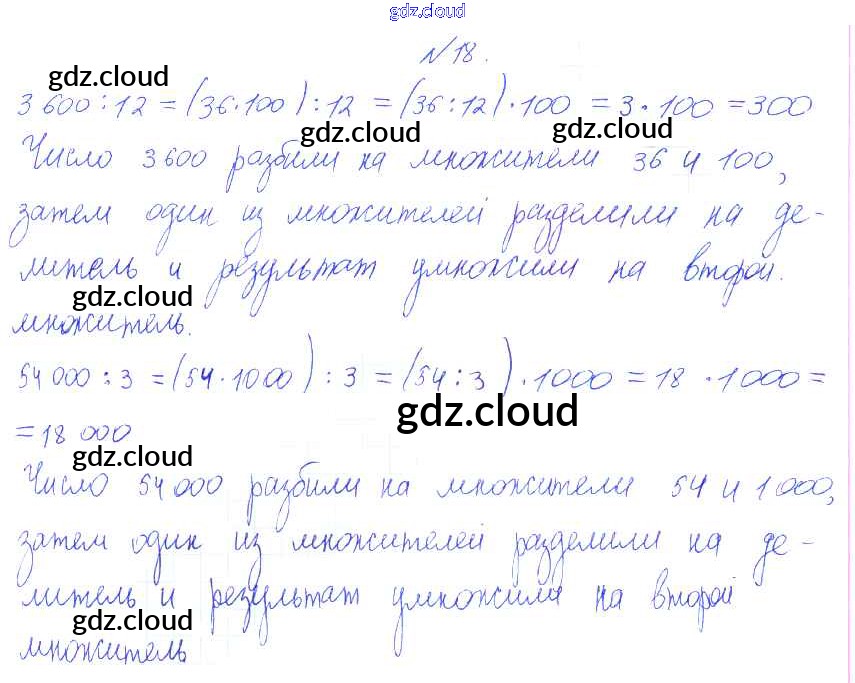 gdz.cloud
№18.
gdz.cloud
3 600 : 12 = (36·100) : 12 = (36 : 12) · 100 = 3 · 100 = 300
gdz.cloud gdz.cloud
Число 3 600 разбили на множители 36 и 100,
затем один из множителей разделили на де-
литель и результат умножили на второй.
gdz.cloud
множитель.
54 000 : 3 = (54 · 1000) : 3 = (54 : 3) · 1000 = 18 · 1000 =
gdz.cloud
= 18 000
gdz.cloud
Число 54 000 разбили на множители 54 и 1 000,
затем один из множителей разделили на де-
литель и результат умножили на второй
gdz.cloud
множитель